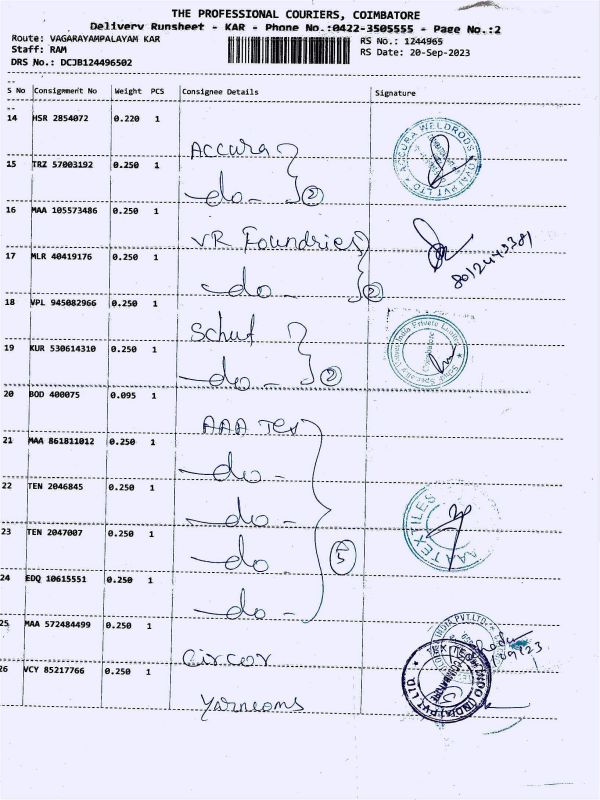 THE PROFESSIONAL COURIERS, COIMBATORE
Delivery Runsheet - KAR - Phone No.:0422-3505555 - Page No.:2
Route: VAGARAYAMPALAYAM KAR RS No.: 1244965
Staff: RAM RS Date: 20-Sep-2023
DRS No.: DCJB124496502
S No Consignment No Weight PCS Consignee Details Signature
14 HSR 2854072 0.220 1 Accura
15 TRZ 57003192 0.250 1 -do- 2
16 MAA 105573486 0.250 1 VR Foundries
17 MLR 40419176 0.250 1 -do- 2
18 VPL 945082966 0.250 1 Schuf
19 KUR 530614310 0.250 1 -do- 2
20 BOD 400075 0.095 1 AAA Tex
21 MAA 861811012 0.250 1 -do-
22 TEN 2046845 0.250 1 -do-
AAA TEXTILES
23 TEN 2047007 0.250 1 -do- 5
24 EDQ 10615551 0.250 1 -do-
25 MAA 572484499 0.250 1 Circor
26 VCY 85217766 0.250 1